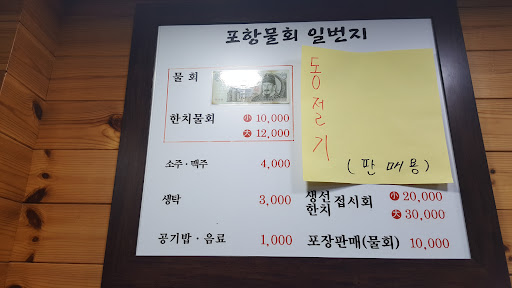 포항물회 일번지
물 회
한치물회 小 10,000
大 12,000
소주·맥주 4,000
생탁 3,000
공기밥·음료 1,000
동절기
(판매용)
생선 한치 접시회 小 20,000
大 30,000
포장판매(물회) 10,000